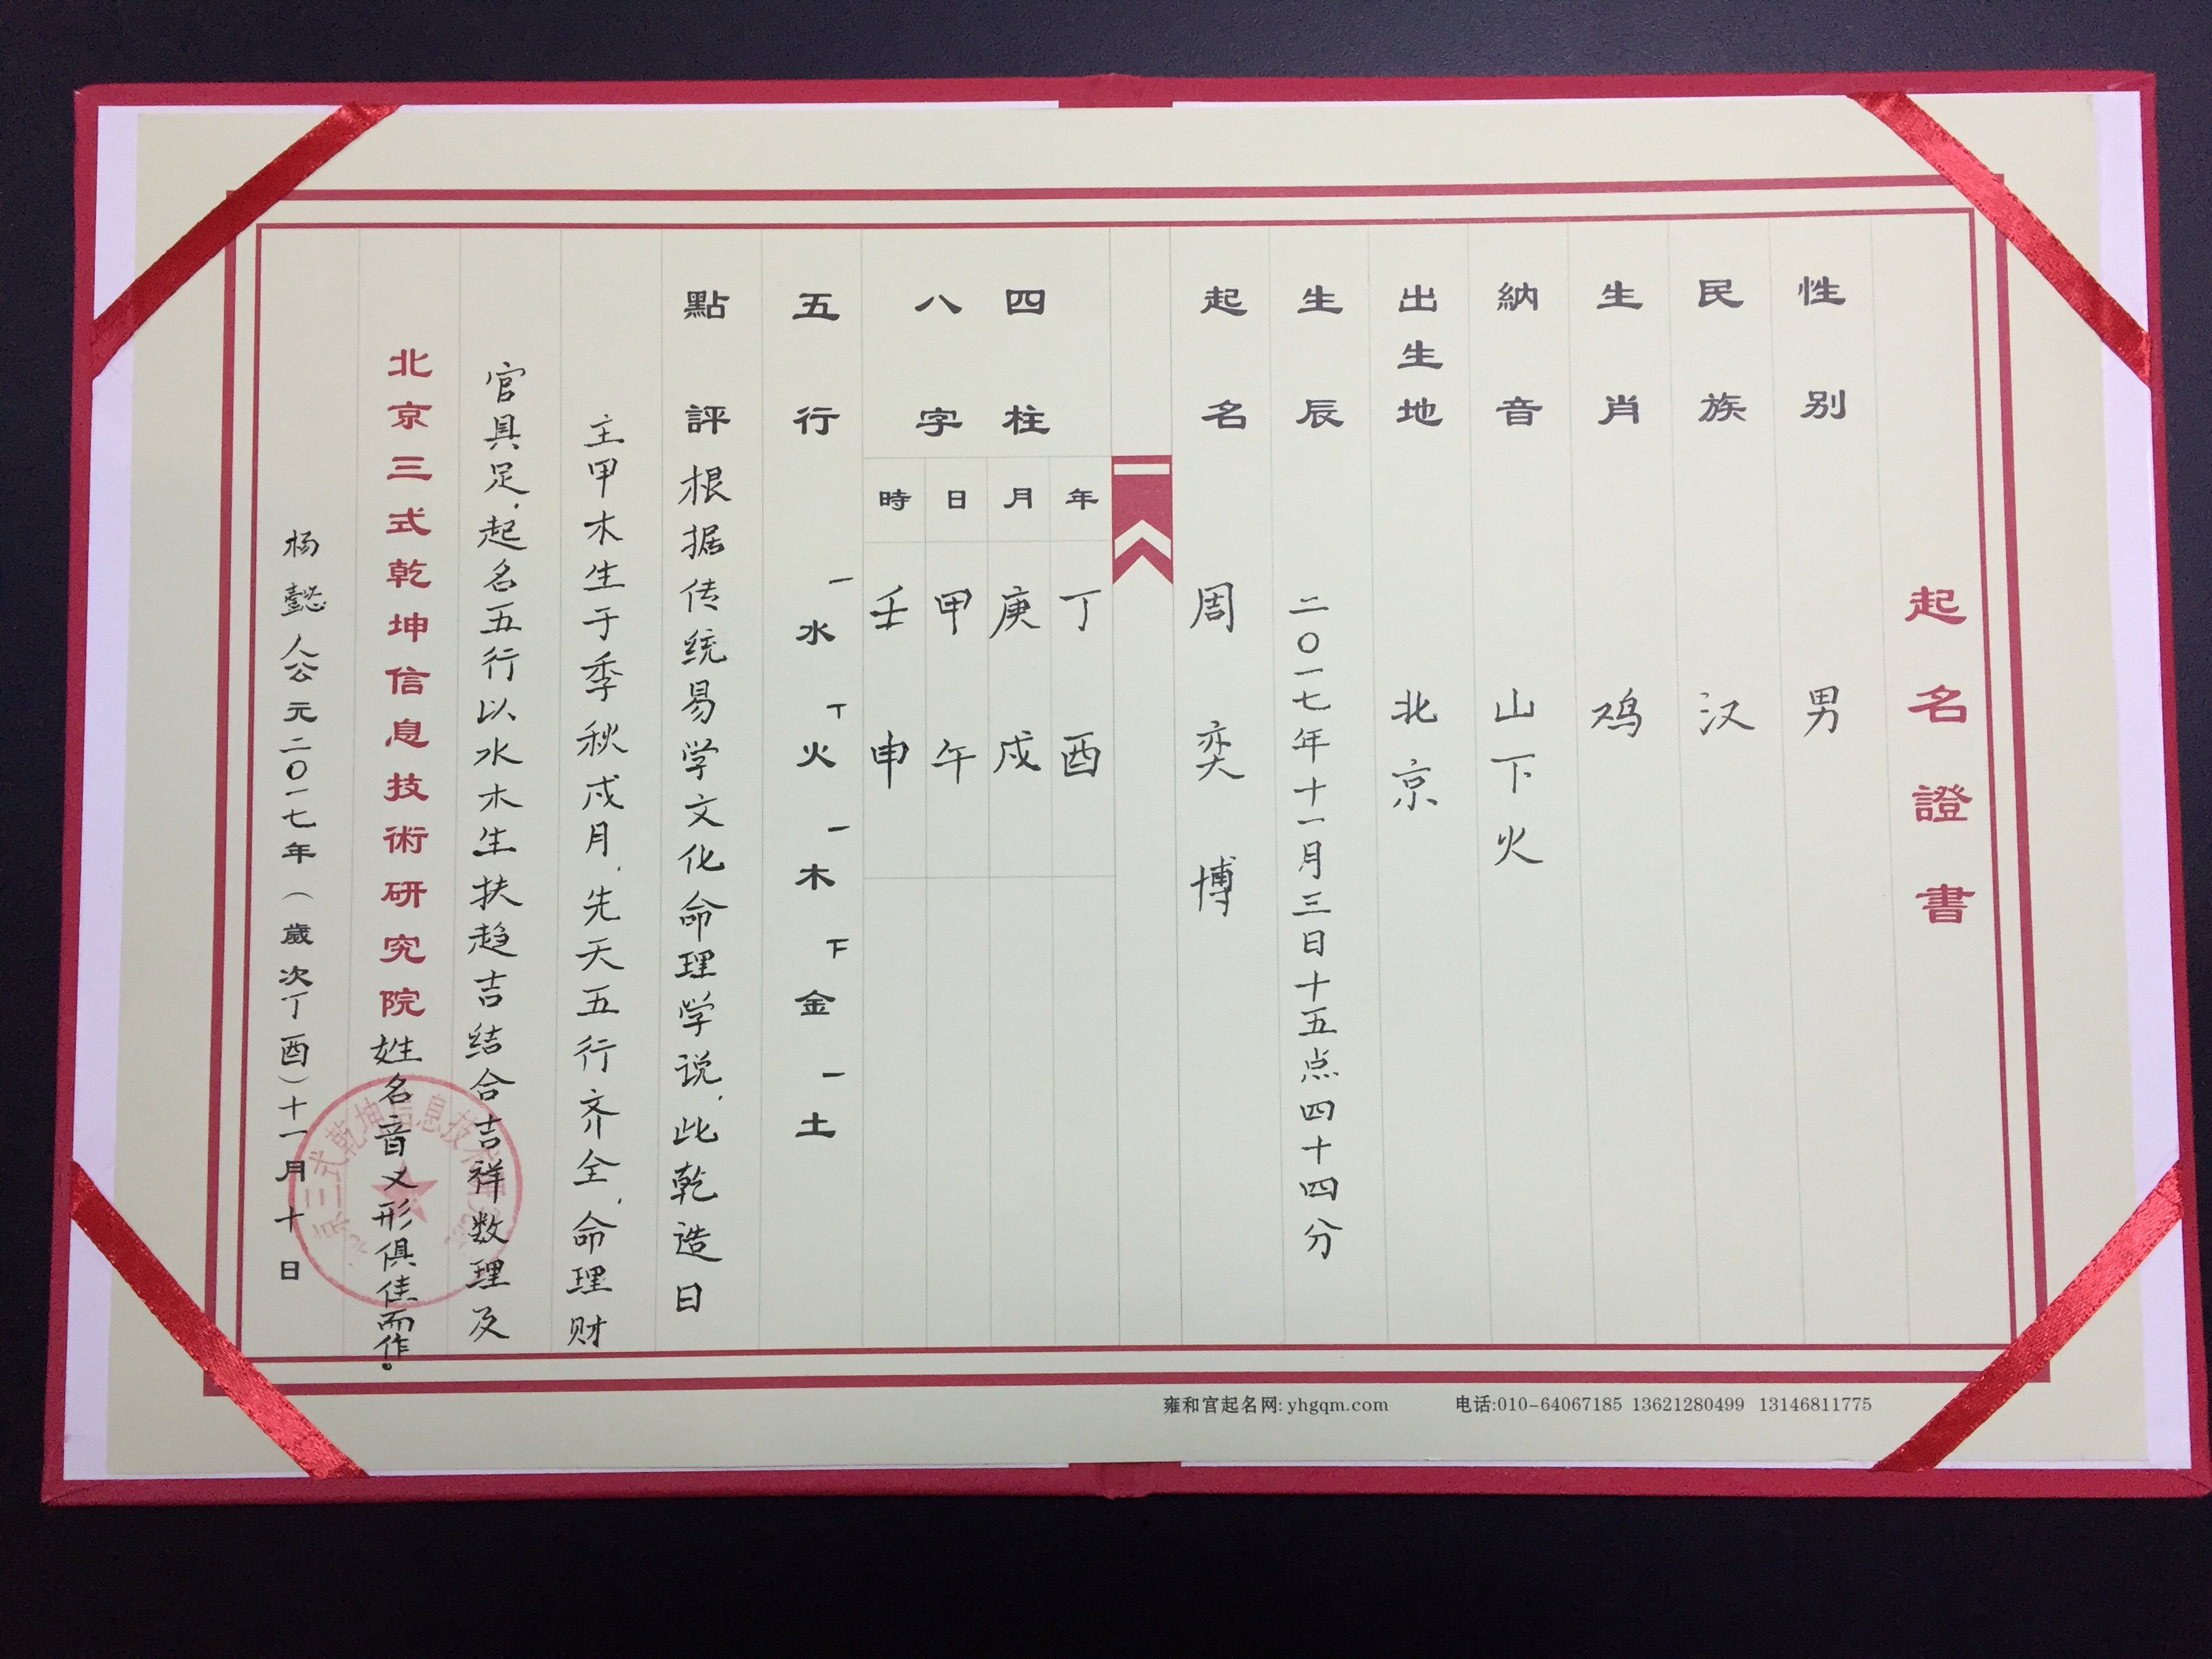 起名證書
性别 男
民族 汉
生肖 鸡
納音 山下火
出生地 北京
生辰 二〇一七年十一月三日十五点四十四分
起名 周奕博
四柱
八字
年 丁酉
月 庚戌
日 甲午
時 壬申
五行 一水 丅火 一木 下金 一土
點評 根据传统易学文化命理学说，此乾造日
主甲木生于季秋戌月，先天五行齐全，命理财
官具足，起名五行以水木生扶趋吉结合吉祥数理及
北京三式乾坤信息技術研究院 姓名音义形俱佳而作。
杨懿人 公元二〇一七年（歲次丁酉）十一月十日
京三式乾坤信息技术研究院
雍和宫起名网: yhgqm.com 电话:010-64067185 13621280499 13146811775